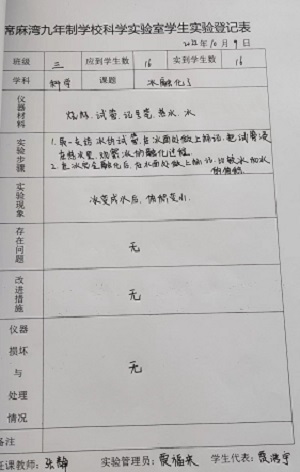 常麻湾九年制学校科学实验室学生实验登记表
2022年10月9日
班级 三 应到学生数 16 实到学生数 16
学科 科学 课题 冰融化了
仪器材料 烧杯、试管、记号笔、热水、冰
实验步骤 1.取一支装冰的试管,在冰面处做上标记,把试管浸
在热水里,观察冰的融化过程。
2.在冰完全融化后,在水面处做上标记,比较冰和水
的体积。
实验现象 冰变成水后,体积变小.
存在问题 无
改进措施 无
仪器损坏与处理情况 无
备注
任课教师: 张静 实验管理员: 学生代表: